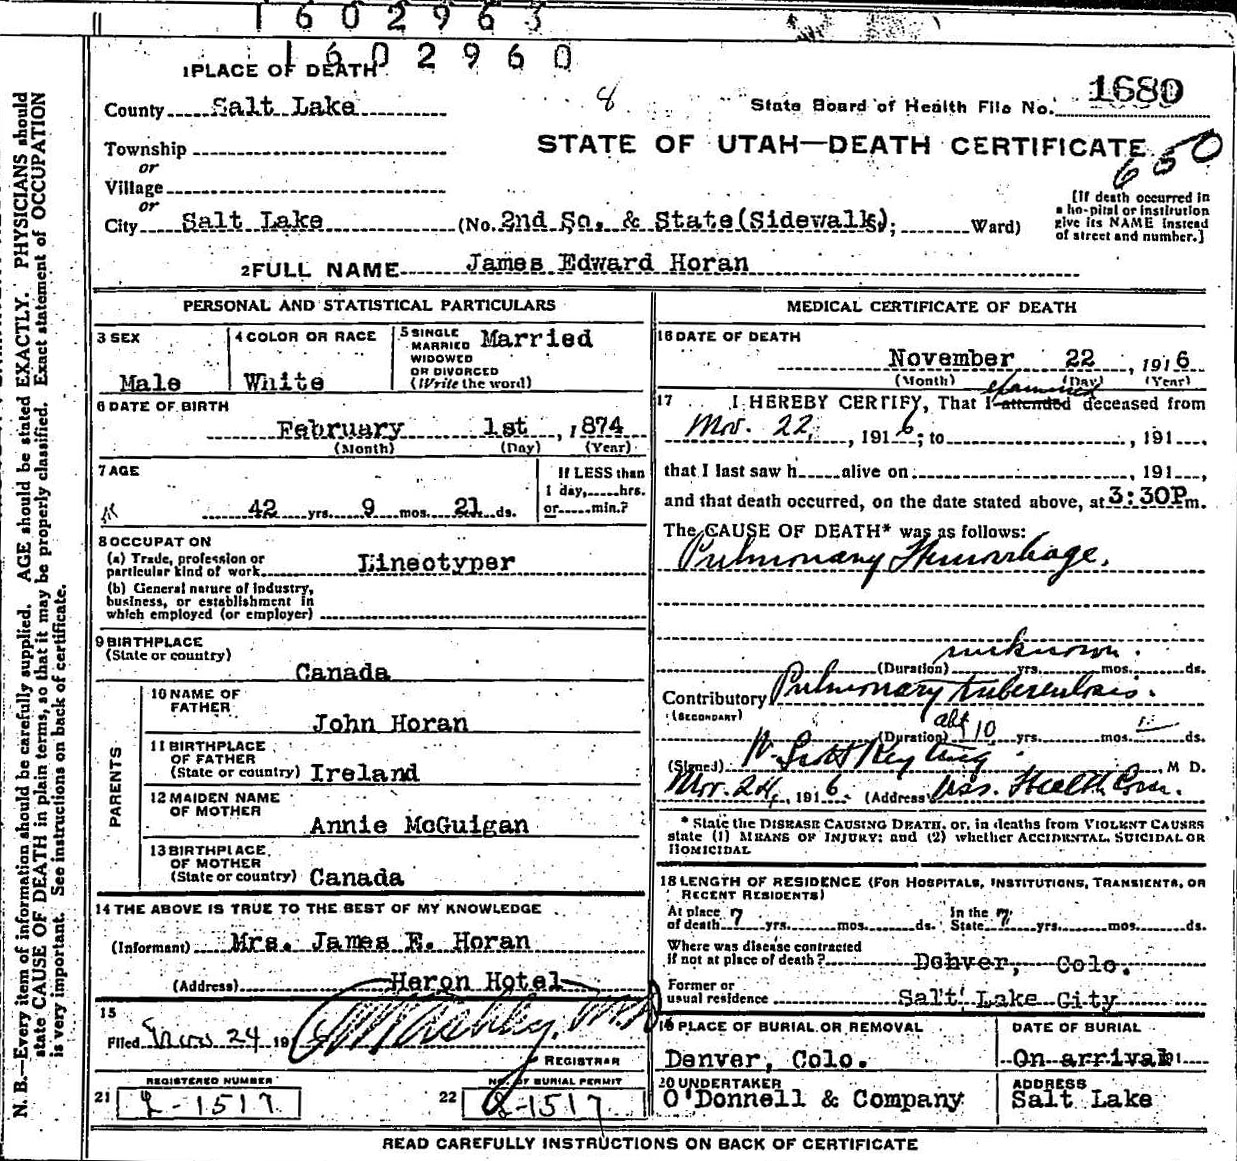 1602963
1602960
1 PLACE OF DEATH
County Salt Lake
8
State Board of Health File No. 1680
Township
or
Village
or
STATE OF UTAH—DEATH CERTIFICATE
650
City Salt Lake (No. 2nd So. & State (Sidewalk); Ward)
[If death occurred in
a hospital or institution
give its NAME instead
of street and number.]
2 FULL NAME James Edward Horan
PERSONAL AND STATISTICAL PARTICULARS
3 SEX
Male
4 COLOR OR RACE
White
5 SINGLE
MARRIED
WIDOWED
OR DIVORCED
(Write the word)
Married
6 DATE OF BIRTH
February 1st, 1874
(Month) (Day) (Year)
7 AGE
42 yrs. 9 mos. 21 ds.
If LESS than
1 day, hrs.
or min.?
8 OCCUPATION
(a) Trade, profession or
particular kind of work Lineotyper
(b) General nature of industry,
business, or establishment in
which employed (or employer)
9 BIRTHPLACE
(State or country)
Canada
PARENTS
10 NAME OF
FATHER
John Horan
11 BIRTHPLACE
OF FATHER
(State or country) Ireland
12 MAIDEN NAME
OF MOTHER
Annie McGuigan
13 BIRTHPLACE
OF MOTHER
(State or country) Canada
14 THE ABOVE IS TRUE TO THE BEST OF MY KNOWLEDGE
(Informant) Mrs. James E. Horan
(Address) Heron Hotel
15
Filed Nov 24 191
REGISTRAR
REGISTERED NUMBER
21 L-1517
NO. OF BURIAL PERMIT
22 L-1517
MEDICAL CERTIFICATE OF DEATH
16 DATE OF DEATH
November 22, 1916
(Month) (Day) (Year)
examined
17 I HEREBY CERTIFY, That I attended deceased from
Nov. 22, 1916; to , 191
that I last saw h alive on , 191 ,
and that death occurred, on the date stated above, at 3:30P m.
The CAUSE OF DEATH* was as follows:
Pulmonary Hemorrhage.
unknown.
(Duration) yrs. mos. ds.
Contributory Pulmonary tuberculosis.
(SECONDARY)
(Duration) abt 10 yrs. mos. ds.
(Signed) W. Scott Keyting, M D.
Nov. 24, 1916 (Address) Ass. Health Com.
* State the DISEASE CAUSING DEATH, or, in deaths from VIOLENT CAUSES
state (1) MEANS OF INJURY; and (2) whether ACCIDENTAL, SUICIDAL OR
HOMICIDAL
18 LENGTH OF RESIDENCE (FOR HOSPITALS, INSTITUTIONS, TRANSIENTS, OR
RECENT RESIDENTS)
At place
of death 7 yrs. mos. ds. In the
State 7 yrs. mos. ds.
Where was disease contracted
if not at place of death? Denver, Colo.
Former or
usual residence Salt Lake City
19 PLACE OF BURIAL OR REMOVAL
Denver, Colo.
DATE OF BURIAL
On arrival 191
20 UNDERTAKER
O'Donnell & Company
ADDRESS
Salt Lake
READ CAREFULLY INSTRUCTIONS ON BACK OF CERTIFICATE
N. B.—Every item of information should be carefully supplied. AGE should be stated EXACTLY. PHYSICIANS should
state CAUSE OF DEATH in plain terms, so that it may be properly classified. Exact statement of OCCUPATION
is very important. See instructions on back of certificate.